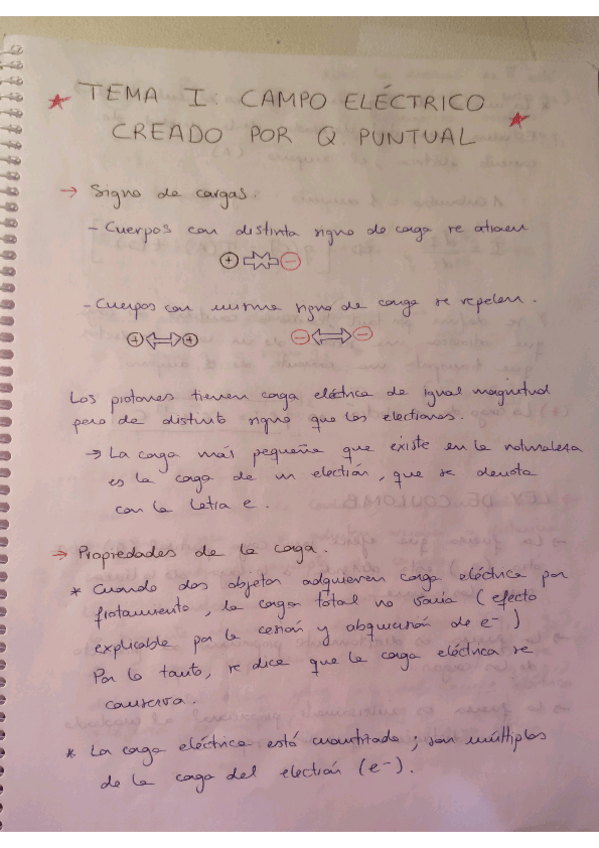 TEMA I: CAMPO ELÉCTRICO
CREADO POR Q PUNTUAL
→ Signo de cargas.
- Cuerpos con distinta signo de carga se atraen
+ -
- Cuerpos con misma signo de carga se repelen.
+ + - -
Los protones tienen carga eléctrica de igual magnitud
pero de distinto signo que los electrones.
→ La carga más pequeña que existe en la naturaleza
es la carga de un electrón, que se denota
con la letra e.
→ Propredades de la carga.
* Cuando dos objetos adquieren carga eléctrica por
frotamiento, la carga total no varía (efecto
explicable por la cesión y adquisición de e-)
Por lo tanto, se dice que la carga eléctrica se
conserva.
* La carga eléctrica está cuantizada; son múltiplos
de la carga del electrón (e-).